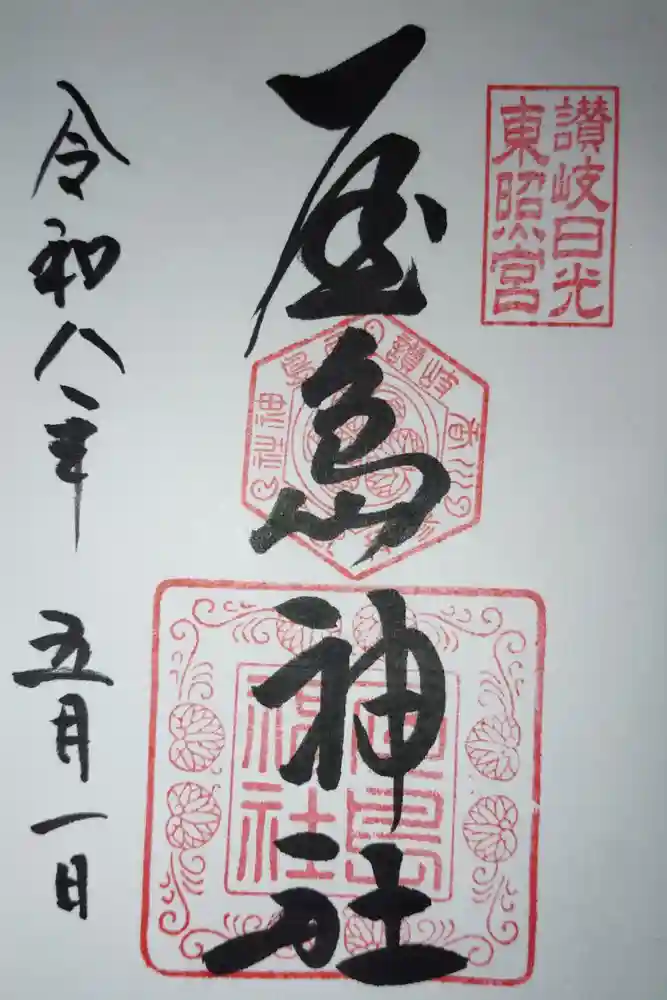 讃岐日光
東照宮
屋島神社
讃岐
神社
屋島
神社
令和八年 五月一日